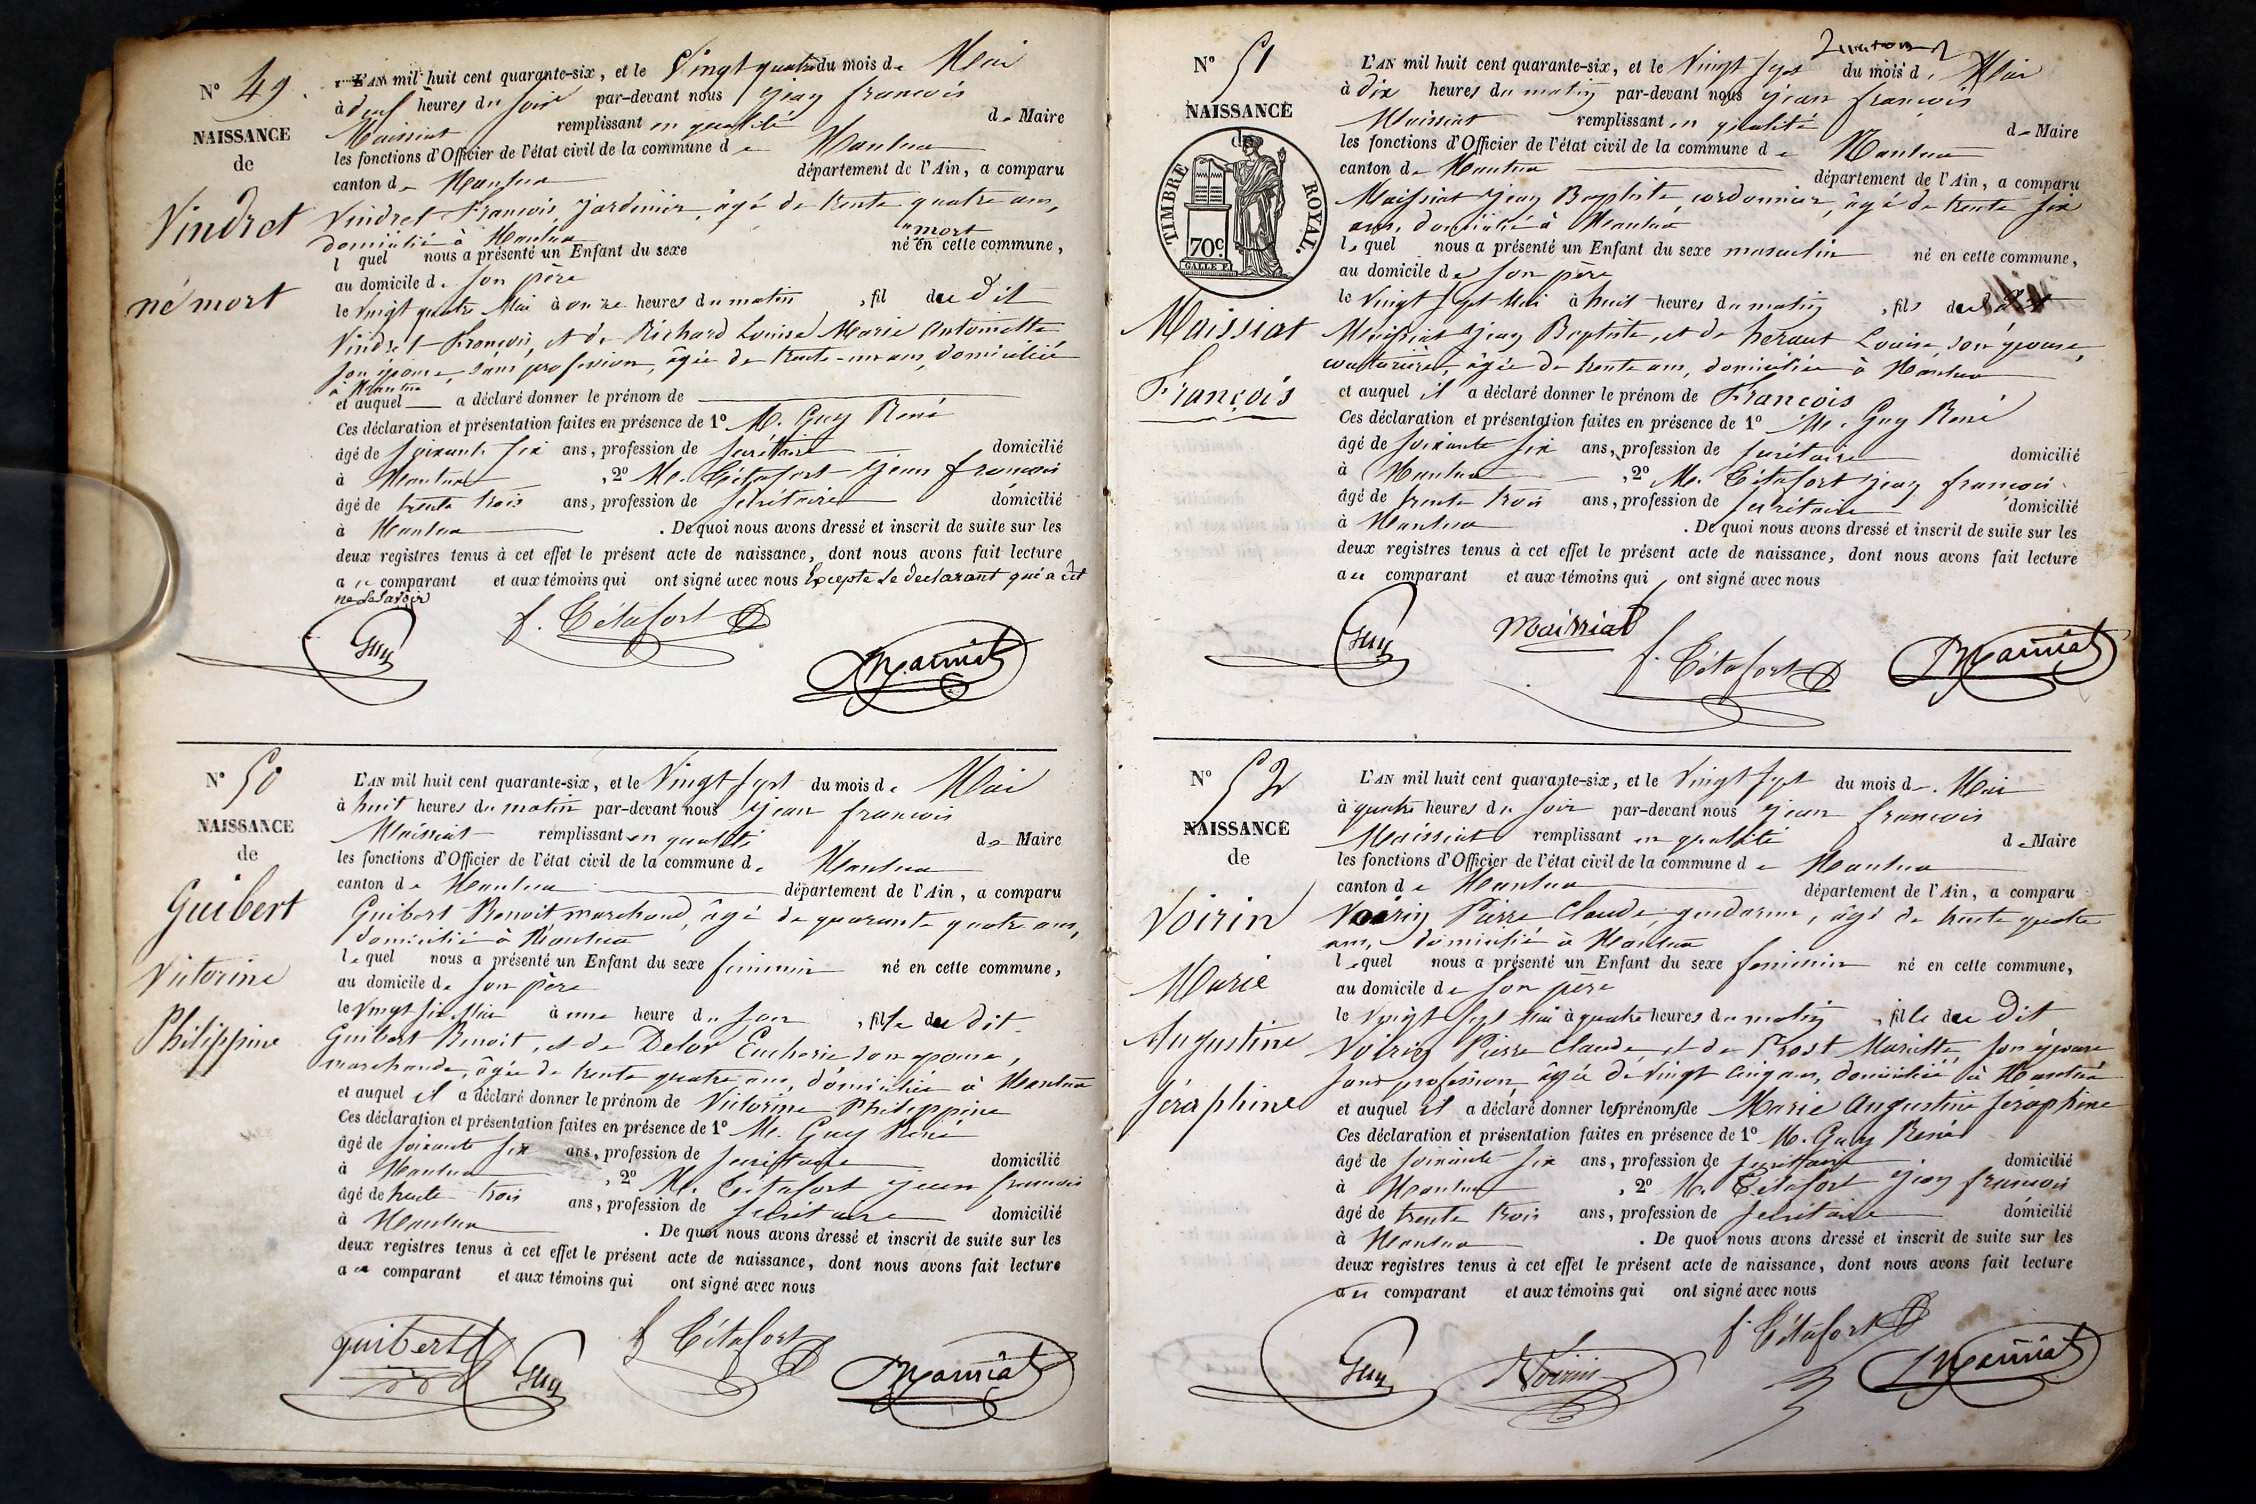 N° 49
NAISSANCE
de
Vindret
né mort
L'AN mil huit cent quarante-six, et le Vingt quatre du mois de Mai
à deux heures du soir par-devant nous Jean françois
Maissiat remplissant en qualité de Maire
les fonctions d'Officier de l'état civil de la commune de Nantua
canton de Nantua département de l'Ain, a comparu
Vindret François, jardinier, âgé de trente quatre ans,
domicilié à Nantua
mort
l quel nous a présenté un Enfant du sexe né en cette commune,
au domicile de son père
le vingt quatre Mai à onze heures du matin, fil du dit
Vindret François, et de Richard Louise Marie Antoinette
son épouse, sans profession, âgée de trente-un ans, domiciliée
à Nantua
et auquel a déclaré donner le prénom de
Ces déclaration et présentation faites en présence de 1° M. Guy René
âgé de soixante six ans, profession de secrétaire domicilié
à Nantua, 2° M. Cétafort Jean françois
âgé de trente trois ans, profession de secrétaire domicilié
à Nantua. De quoi nous avons dressé et inscrit de suite sur les
deux registres tenus à cet effet le présent acte de naissance, dont nous avons fait lecture
au comparant et aux témoins qui ont signé avec nous Excepté le declarant qui a dit
ne le savoir
Guy f. Cétafort Maissiat
N° 50
NAISSANCE
de
Guibert
Victorine
Philippine
L'AN mil huit cent quarante-six, et le Vingt sept du mois de Mai
à huit heures du matin par-devant nous Jean françois
Maissiat remplissant en qualité de Maire
les fonctions d'Officier de l'état civil de la commune de Nantua
canton de Nantua département de l'Ain, a comparu
Guibert Benoit marchand, âgé de quarante quatre ans,
domicilié à Nantua
lequel nous a présenté un Enfant du sexe féminin né en cette commune,
au domicile de son père
le Vingt six Mai à une heure du soir, fille du dit
Guibert Benoit, et de Delor Eucharie son épouse,
marchande, âgée de trente quatre ans, domiciliée à Nantua
et auquel il a déclaré donner le prénom de Victorine Philippine
Ces déclaration et présentation faites en présence de 1° M. Guy René
âgé de soixante six ans, profession de secrétaire domicilié
à Nantua, 2° M. Cétafort Jean françois
âgé de trente trois ans, profession de secrétaire domicilié
à Nantua. De quoi nous avons dressé et inscrit de suite sur les
deux registres tenus à cet effet le présent acte de naissance, dont nous avons fait lecture
au comparant et aux témoins qui ont signé avec nous
guibert Guy f Cétafort Maissiat
N° 51
NAISSANCE
de
TIMBRE ROYAL.
70c
Maissiat
François
L'AN mil huit cent quarante-six, et le Vingt sept du mois de Mai
à dix heures du matin par-devant nous Jean françois
Maissiat remplissant en qualité de Maire
les fonctions d'Officier de l'état civil de la commune de Nantua
canton de Nantua département de l'Ain, a comparu
Maissiat Jean Baptiste cordonnier, âgé de trente six
ans, domicilié à Nantua
lequel nous a présenté un Enfant du sexe masculin né en cette commune,
au domicile de son père
le Vingt sept Mai à huit heures du matin, fils de
Maissiat Jean Baptiste, et de heraut Louise, son épouse,
couturière, âgée de trente ans, domiciliée à Nantua
et auquel il a déclaré donner le prénom de François
Ces déclaration et présentation faites en présence de 1° M. Guy René
âgé de soixante six ans, profession de secrétaire domicilié
à Nantua, 2° M. Cétafort Jean françois
âgé de trente trois ans, profession de secrétaire domicilié
à Nantua. De quoi nous avons dressé et inscrit de suite sur les
deux registres tenus à cet effet le présent acte de naissance, dont nous avons fait lecture
au comparant et aux témoins qui ont signé avec nous
Guy Maissiat f. Cétafort Maissiat
N° 52
NAISSANCE
de
Voirin
Marie
Augustine
Séraphine
L'AN mil huit cent quarante-six, et le Vingt sept du mois de Mai
à quatre heures du soir par-devant nous Jean françois
Maissiat remplissant en qualité de Maire
les fonctions d'Officier de l'état civil de la commune de Nantua
canton de Nantua département de l'Ain, a comparu
Voirin Pierre Claude, gendarme, âgé de trente quatre
ans, domicilié à Nantua
lequel nous a présenté un Enfant du sexe féminin né en cette commune,
au domicile de son père
le Vingt sept Mai à quatre heures du matin, fille du dit
Voirin Pierre Claude, et de Prost Mariette, son épouse
sans profession, âgée de vingt cinq ans, domiciliée à Nantua
et auquel il a déclaré donner les prénoms de Marie Augustine Séraphine
Ces déclaration et présentation faites en présence de 1° M. Guy René
âgé de soixante six ans, profession de secrétaire domicilié
à Nantua, 2° M. Cétafort Jean françois
âgé de trente trois ans, profession de secrétaire domicilié
à Nantua. De quoi nous avons dressé et inscrit de suite sur les
deux registres tenus à cet effet le présent acte de naissance, dont nous avons fait lecture
au comparant et aux témoins qui ont signé avec nous
Guy Voirin f. Cétafort Maissiat